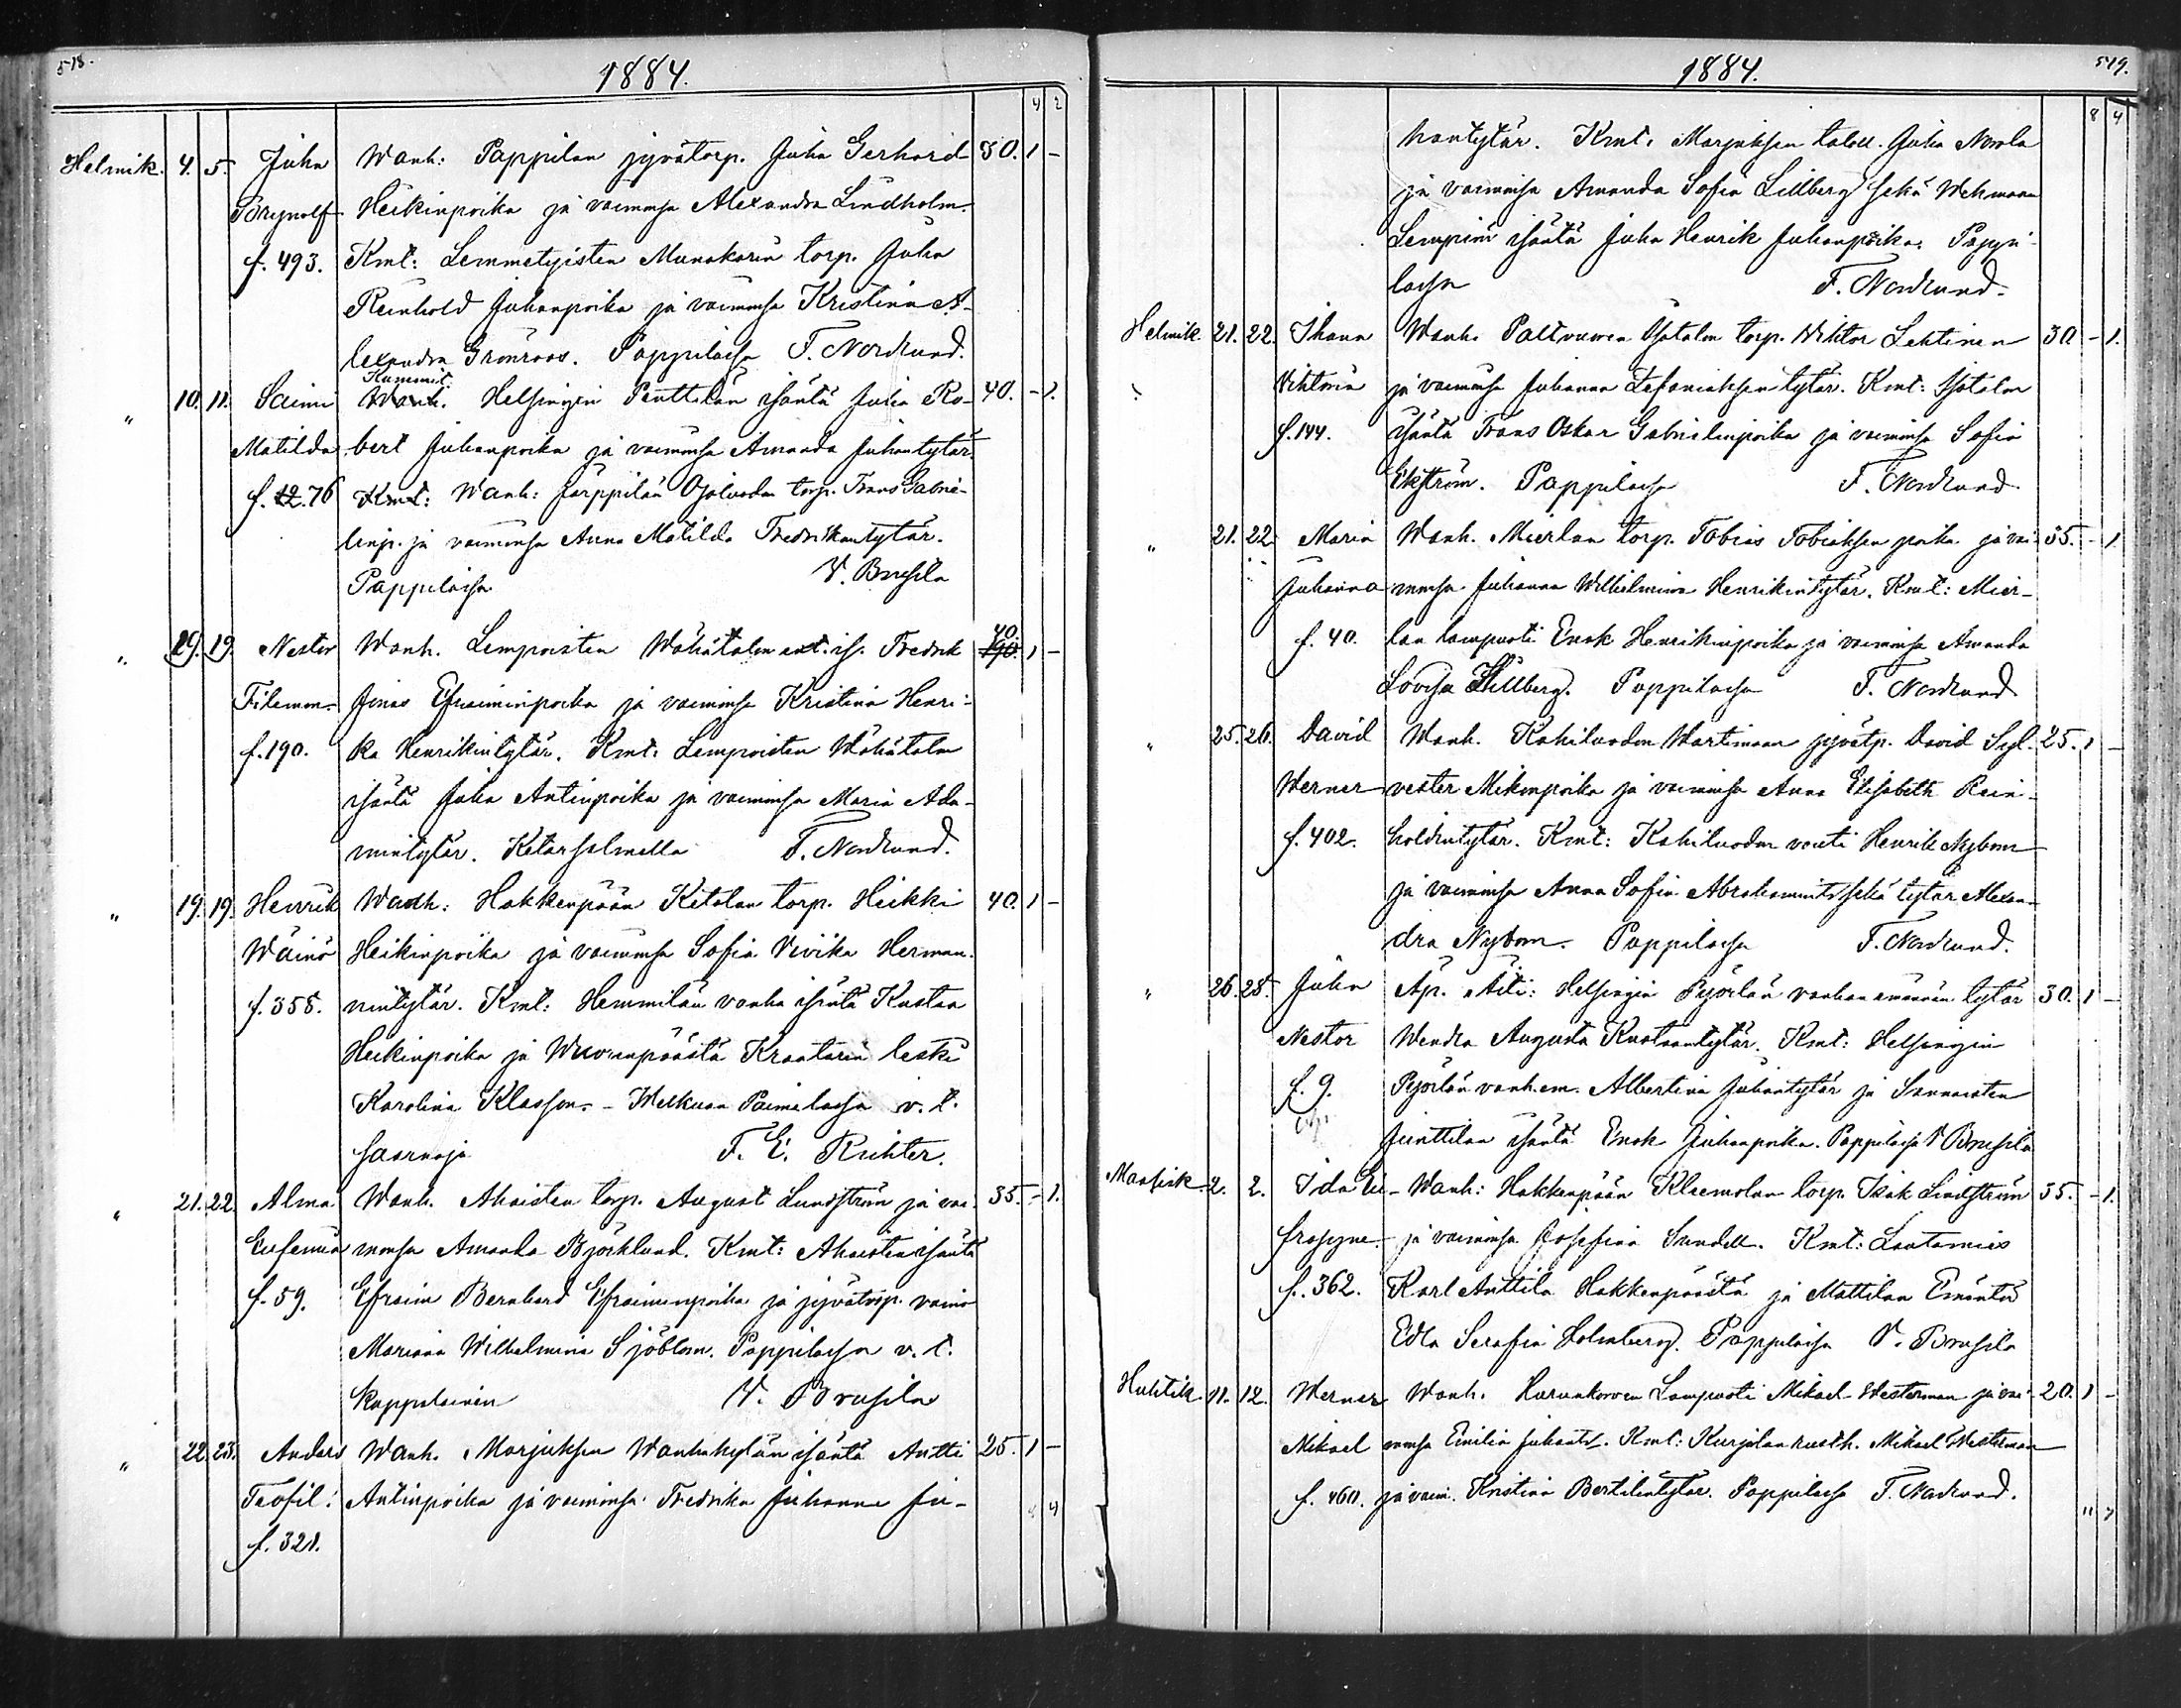 518.
1884.
4 2
Helmik. 4. 5. Juha Wanh: Pappilan jyvätorp. Juha Gerhard 30. 1 -
Brynolf Heikinpoika ja vaimonsa Alexandra Lindholm.
f. 493. Kmt: Lemmetyisten Munakarin torp. Juha
Reinhold Juhanpoika ja vaimonsa Kristina A-
lexandra Grönroos. Pappilassa F. Nordlund.
Kummit.
" 10. 11. Saimi Wanh. Helsingin Penttilän isäntä Juha Ro- 40. - 1.
Matilda bert Juhanpoika ja vaimonsa Amanda Juhantytär.
f. 12. 76 Kmt: Wanh: Jarppilän Ojaluodon torp. Frans Gabrie-
linp. ja vaimonsa Anna Matilda Fredrikantytär.
Pappilassa V. Brusila
40.
" 19. 19. Nestor Wanh. Lempoisten Wähätalon ent. is. Fredrik 190. 1 -
Filemon Jonas Efraiminpoika ja vaimonsa Kristina Henri-
f. 190. ka Henrikintytär. Kmt: Lempoisten Wähätalon
isäntä Juha Antinpoika ja vaimonsa Maria Ada-
mintytär. Ketarsalmella F. Nordlund.
" 19. 19. Henrik Wanh: Hakkenpään Ketolan torp. Heikki 40. 1 -
Wäinö Heikinpoika ja vaimonsa Sofia Vivika Herman-
f. 358. nintytär. Kmt: Hemmilän vanha isäntä Kustaa
Heikinpoika ja Wuorenpäästä Kraatarin leski
Karolina Klasson. - Welkuan Paimelassa v. t.
saarnaja F. E. Richter.
" 21. 22. Alma Wanh. Ahaisten torp. August Lundström ja vai- 35. - 1.
Eufemia monsa Amanda Björklund. Kmt: Ahaisten isäntä
f. 59. Efraim Bernhard Efraiminpoika ja jyvätorp. vaimo
Mariana Wilhelmina Sjöblom. Pappilassa v. t.
kappalainen V. Brusila
" 22. 23. Anders Wanh. Marjuksen Wanhankylän isäntä Antti 25. 1 -
Teofil. Antinpoika ja vaimonsa Fredrika Juhanna Ju-
f. 321.
4 4
1884.
519.
8 4
hantytär. Kmt: Marjuksen taloll. Juha Norola
ja vaimonsa Amanda Sofia Lillberg sekä Wehmaan
Lempin isäntä Juha Henrik Juhanpoika. Pappi-
lassa F. Nordlund.
Helmik. 21. 22. Ihana Wanh. Paltvuoren Isotalon torp. Wiktor Lehtinen 30 - 1.
Viktoria ja vaimonsa Juhanna Zefaniaksentytär. Kmt: Isotalon
f. 144. isäntä Frans Oskar Gabrielinpoika ja vaimonsa Sofia
Ekström. Pappilassa F. Nordlund.
" 21. 22 Maria Wanh. Mierlan torp. Tobias Tobiaksen poika ja vai- 35. - 1.
Juhanna monsa Juhanna Wilhelmina Henrikintytär. Kmt: Mier-
f. 40. lan lampuoti Enok Henrikinpoika ja vaimonsa Amanda
Lovisa Hillberg. Pappilassa F. Nordlund
" 25. 26. David Wanh. Kahiluodon Wartimaan jyvätp. David Syl- 25. 1 -
Werner vester Mikonpoika ja vaimonsa Anna Elisabeth Rein-
f. 402. holdintytär. Kmt: Kahiluodon vouti Henrik Nybom
ja vaimonsa Anna Sofia Abrahamint. sekä tytär Alexan-
dra Nybom. Pappilassa F. Nordlund.
" 26. 28. Juha Äp. Äiti: Helsingin Pyörlän vanhan emännän tytär 30. 1 -
Nestor Wendla Augusta Kustaantytär. Kmt: Helsingin
f. 9. Pyörlän vanh. em. Albertina Juhantytär ja Sannaisten
Junttilan isäntä Enok Juhanpoika. Pappilassa V Brusila
Maalisk. 2. 2. Ida Eu- Wanh: Hakkenpään Kleemolan torp. Isak Lindström 35. - 1.
frosyne. ja vaimonsa Josefina Sundell. Kmt: Lautamies
f. 362. Karl Anttila Hakkenpäästä ja Mattilan Emäntä
Edla Serafia Holmberg. Pappilassa V. Brusila
Huhtik. 11. 12. Werner Wanh. Kurunkorven Lampuoti Mikael Westerman ja vai- 20. 1 -
Mikael monsa Emilia Juhant. Kmt: Kurjolan rusth. Mikael Westerman
f. 460. ja vaim. Kristina Bertilintytär. Pappilassa F. Nordlund.
11 7